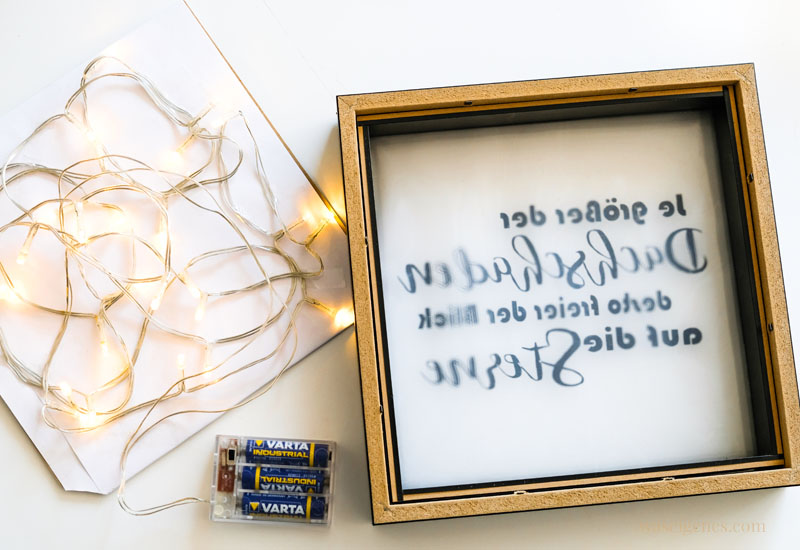 Je größer der
Dachschaden
desto freier der Blick
auf die Sterne
VARTA
INDUSTRIAL
INDUSTRIAL
VARTA
VARTA
waseigenes.com